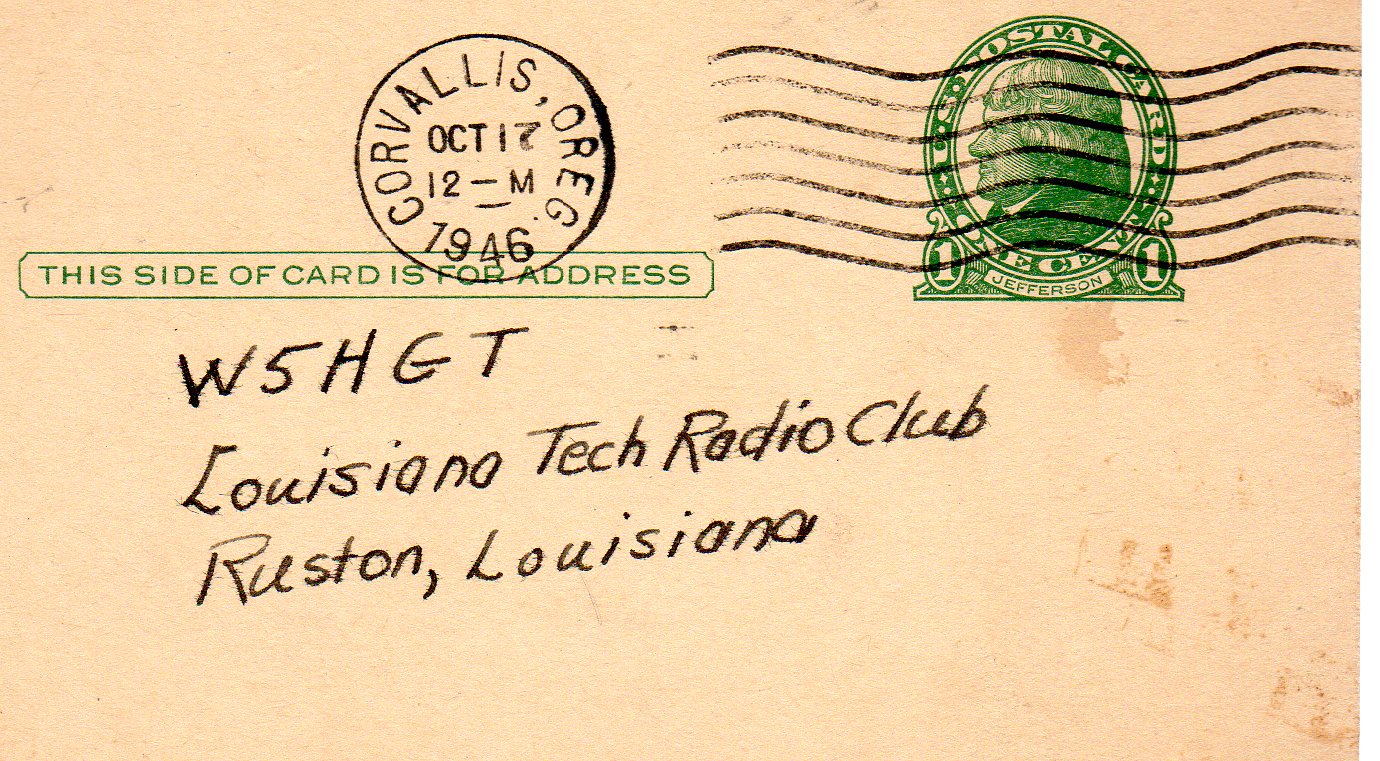 CORVALLIS, OREG.
OCT 17
12 — M
1946
U.S. POSTAL CARD
ONE CENT
1 JEFFERSON 1
THIS SIDE OF CARD IS FOR ADDRESS
W5HGT
Louisiana Tech Radio Club
Ruston, Louisiana